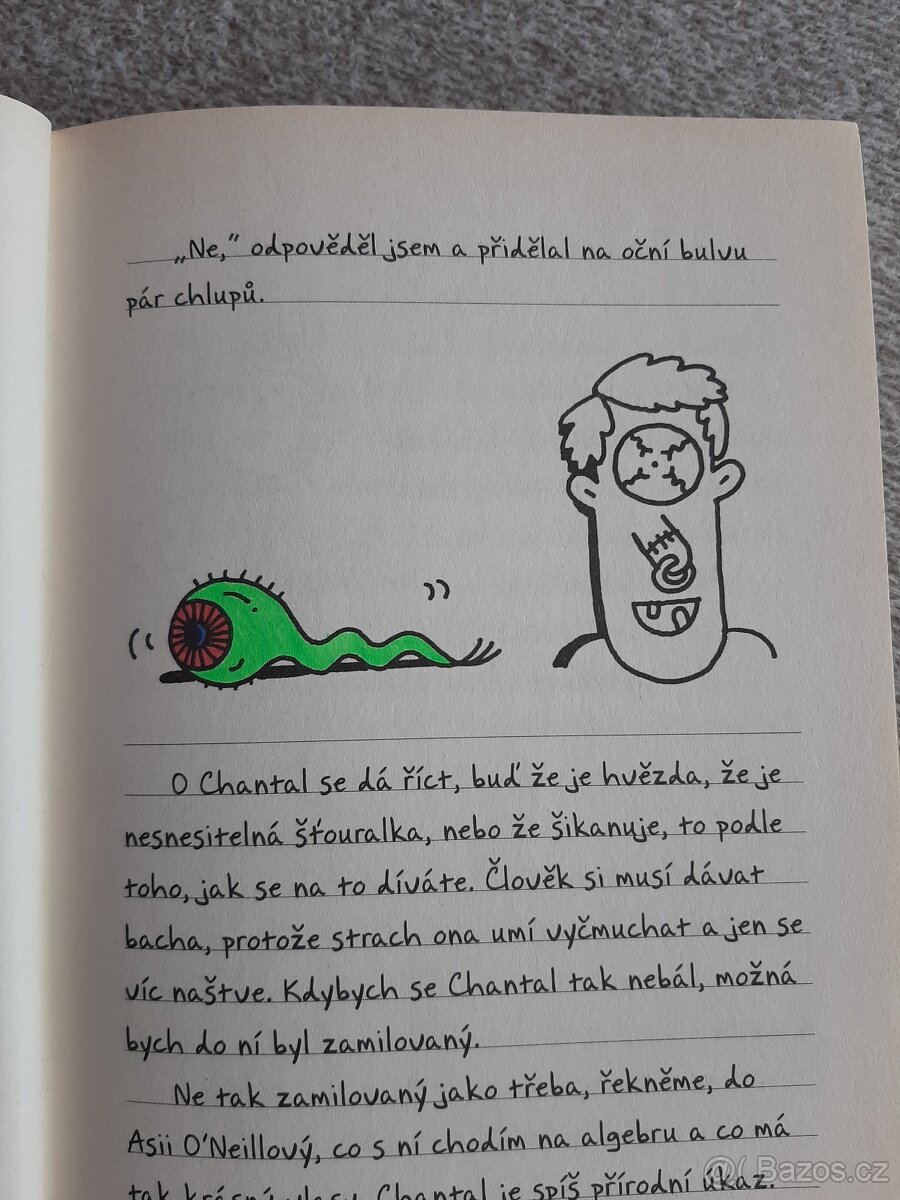 „Ne,“ odpověděl jsem a přidělal na oční bulvu
pár chlupů.
O Chantal se dá říct, buď že je hvězda, že je
nesnesitelná šťouralka, nebo že šikanuje, to podle
toho, jak se na to díváte. Člověk si musí dávat
bacha, protože strach ona umí vyčmuchat a jen se
víc naštve. Kdybych se Chantal tak nebál, možná
bych do ní byl zamilovaný.
Ne tak zamilovaný jako třeba, řekněme, do
Asii O'Neillový, co s ní chodím na algebru a co má
tak krásné vlasy. Chantal je spíš přírodní úkaz.
Bazos.cz